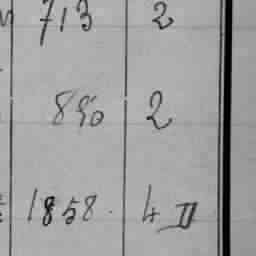 713 2
890 2
1858. 4 II